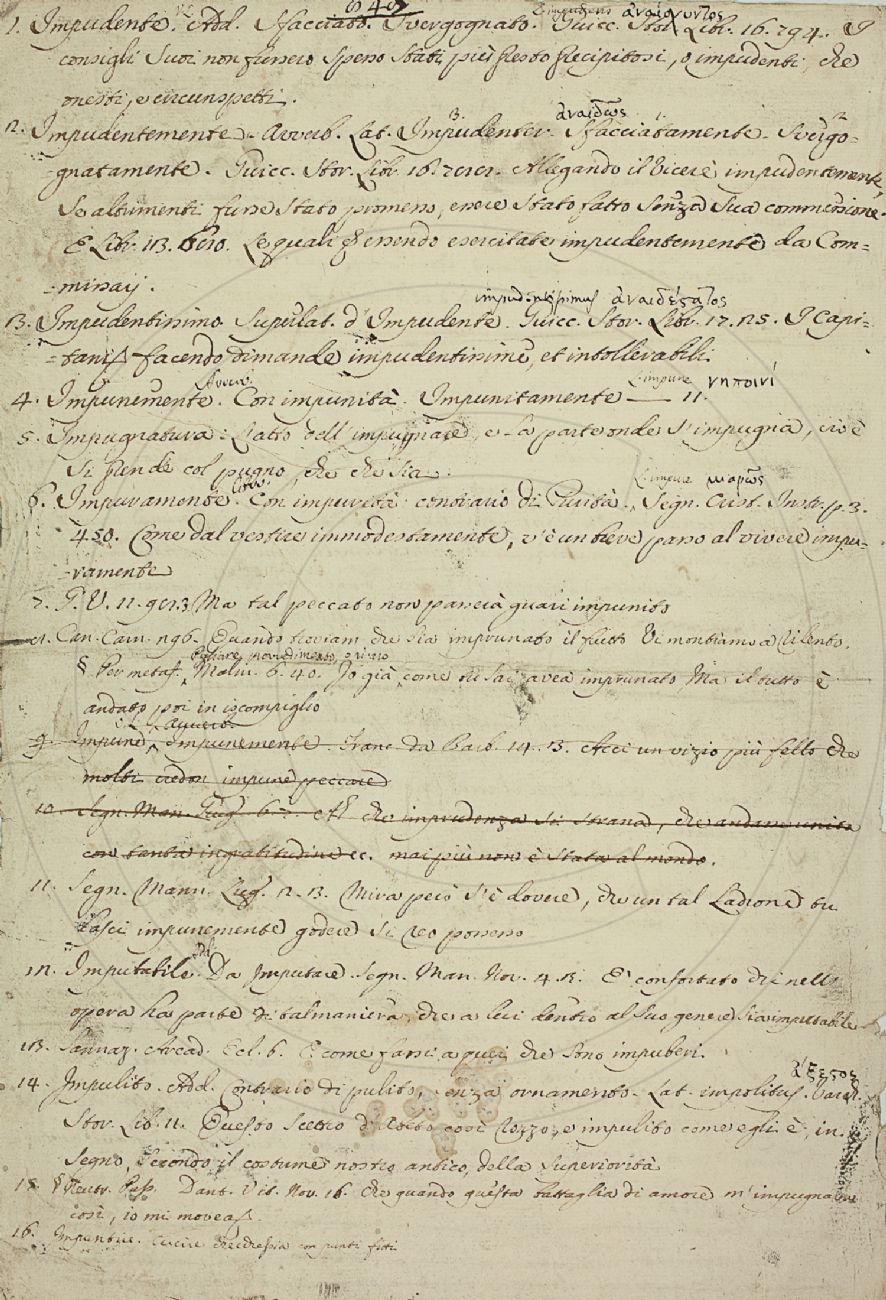 1. Impudente. Add. Sfacciato. Svergognato. Guicc. Stor. Lib. 16. 794. I
consigli suoi non fussero spesso stati più presto precipitosi, o impudenti, che
onesti, e circunspetti.
ἀναιδῶς
2. Impudentemente. Avverb. Lat. Impudenter. Sfacciatamente. Svergo-
gnatamente. Guicc. Stor. Lib. 16. Allegando il Vicerè impudentemente,
se altrimenti fusse stato promesso, essere stato fatto senza sua commessione.
E Lib. 13. Le quali essendo esercitate impudentemente da Com-
missarj.
impudentissimus
3. Impudentissimo. Superlat. d'Impudente. Guicc. Stor. Lib. 17. I Capi-
tani facendo dimande impudentissime, et intollerabili.
Avverb. νηποινί
4. Impunemente. Con impunità. Impunitamente — 11.
5. Impugnatura: L'atto dell'impugnare, e la parte onde s'impugna, cioè
si prende col pugno, che che sia.
μιαρῶς
6. Impuramente. Con impurità contrario di Purità. Segn. Crist. Instr. p. 3.
450. Come dal vestire immodestamente, v'è un breve passo al vivere impu-
ramente
7. G. V. 11. Ma tal peccato non passerà guari impunito
Can. Carn. Quando troviam che sia imprunato il tutto Vi montiamo a rilento.
§ Per metaf. Malm. 6. 40. Io già, come tu sai, avea imprunato Ma il tutto è
andato poi in iscompiglio
9. Impune, Impunemente. Franc. da Barb. 14. 13. Acci un vizio più fello che
molti credon impune peccare
10. Segn. Man. che imprudenza sì strana, che andare unita
con tanta ingratitudine ec. mai più non è stata al mondo.
11. Segn. Mann. Lug. 12. 13. Mira però s'è dovere, che un tal Ladrone tu
lasci impunemente godere sì reo possesso
Add.
12. Imputabile. Da Imputare. Segn. Man. Nov. 4. E' confortato che nell'
opera ha parte di tal maniera, che a lui dentro al suo genere sia imputabile
13. Sannaz. Arcad. Ecl. 6. E come fansi a quei che sono impuberi.
14. Impulito. Add. Contrario di pulito, senza ornamento. Lat. impolitus.
Stor. Lib. 11. Questo Scettro così rozzo, e impulito come egli è, in
segno, secondo il costume nostro antico, della superiorità
15. § Neutr. Pass. Dant. Vit. Nov. 16. che quando questa battaglia di amore m'impugnava
così, io mi moveasi
16. Impuntire. Cucire checchessia con punti fitti